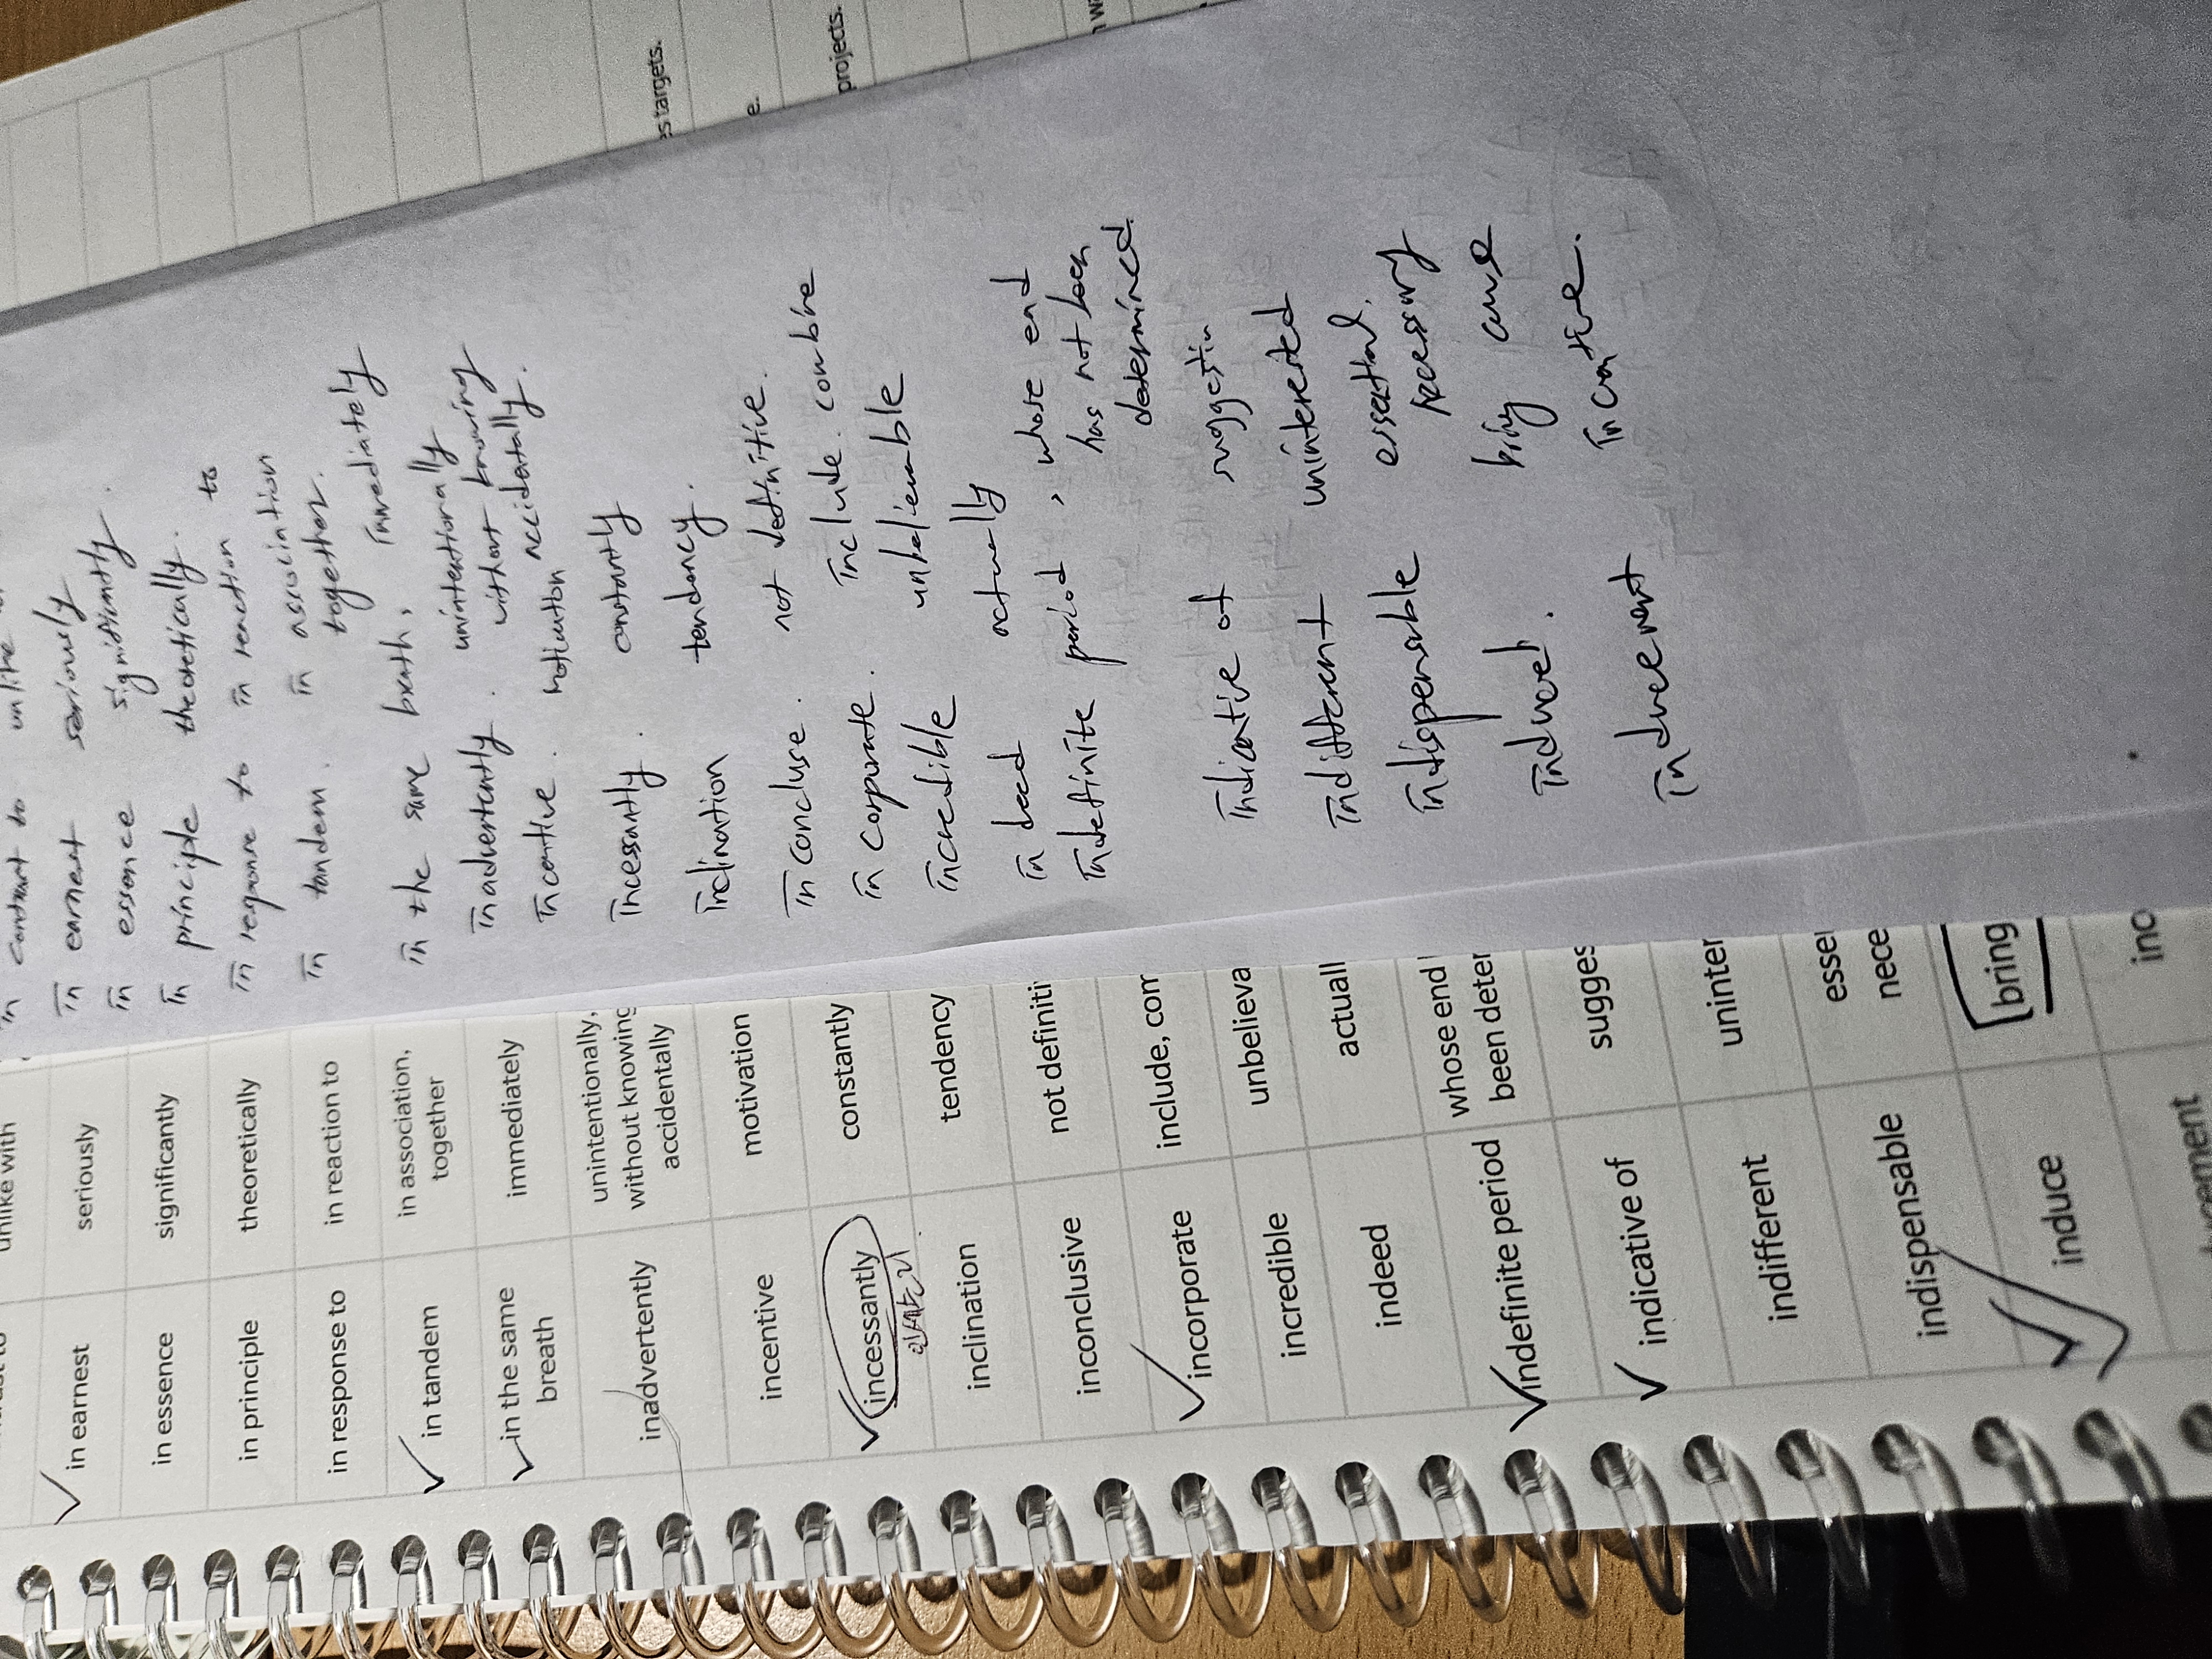 unlike with
in earnest seriously
in essence significantly
in principle theoretically
in response to in reaction to
in tandem in association,
together
in the same
breath immediately
inadvertently unintentionally,
without knowing
accidentally
incentive motivation
incessantly constantly
inclination tendency
inconclusive not definiti
incorporate include, com
incredible unbelieva
indeed actuall
indefinite period whose end
been deter
indicative of sugges
indifferent uninter
indispensable esse
nece
induce bring
cement inc
in contrast to unlike
in earnest seriously
in essence significantly.
in principle theoretically.
in response to in reaction to
in tandem. in association
together.
in the same breath, immediately
inadvertently. unintentionally
without knowing
accidentally.
incentive. motivation
incessantly. constantly
inclination tendency.
in concluse. not definitive.
in corporate. include. combine
incredible unbelievable
in deed actually
indefinite period, whose end
has not been
determined.
indicative of suggestin
indifferent uninterested
indispensable essential,
necessary
induced. cause
inducement incentive.
s targets.
e.
projects.